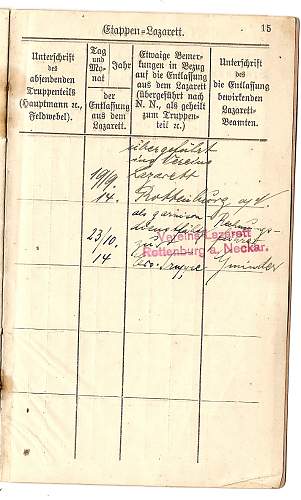 Etappen-Lazarett.
15
Unterschrift
des
absendenden
Truppenteils
(Hauptmann ꝛc.,
Feldwebel).
Tag
und
Mo-
nat
Jahr
der
Entlassung
aus dem
Lazarett.
Etwaige Bemer-
kungen in Bezug
auf die Entlassung
aus dem Lazarett
(übergeführt nach
N. N., als geheilt
zum Truppen-
teil ꝛc.)
Unterschrift
des
die Entlassung
bewirkenden
Lazarett-
Beamten.
übergeführt
ins Vereins
Lazarett
19/9. Rottenburg a/N.
14.
als garnison
23/10.
14
Vereins Lazarett
Rottenburg a. Neckar.
Truppe